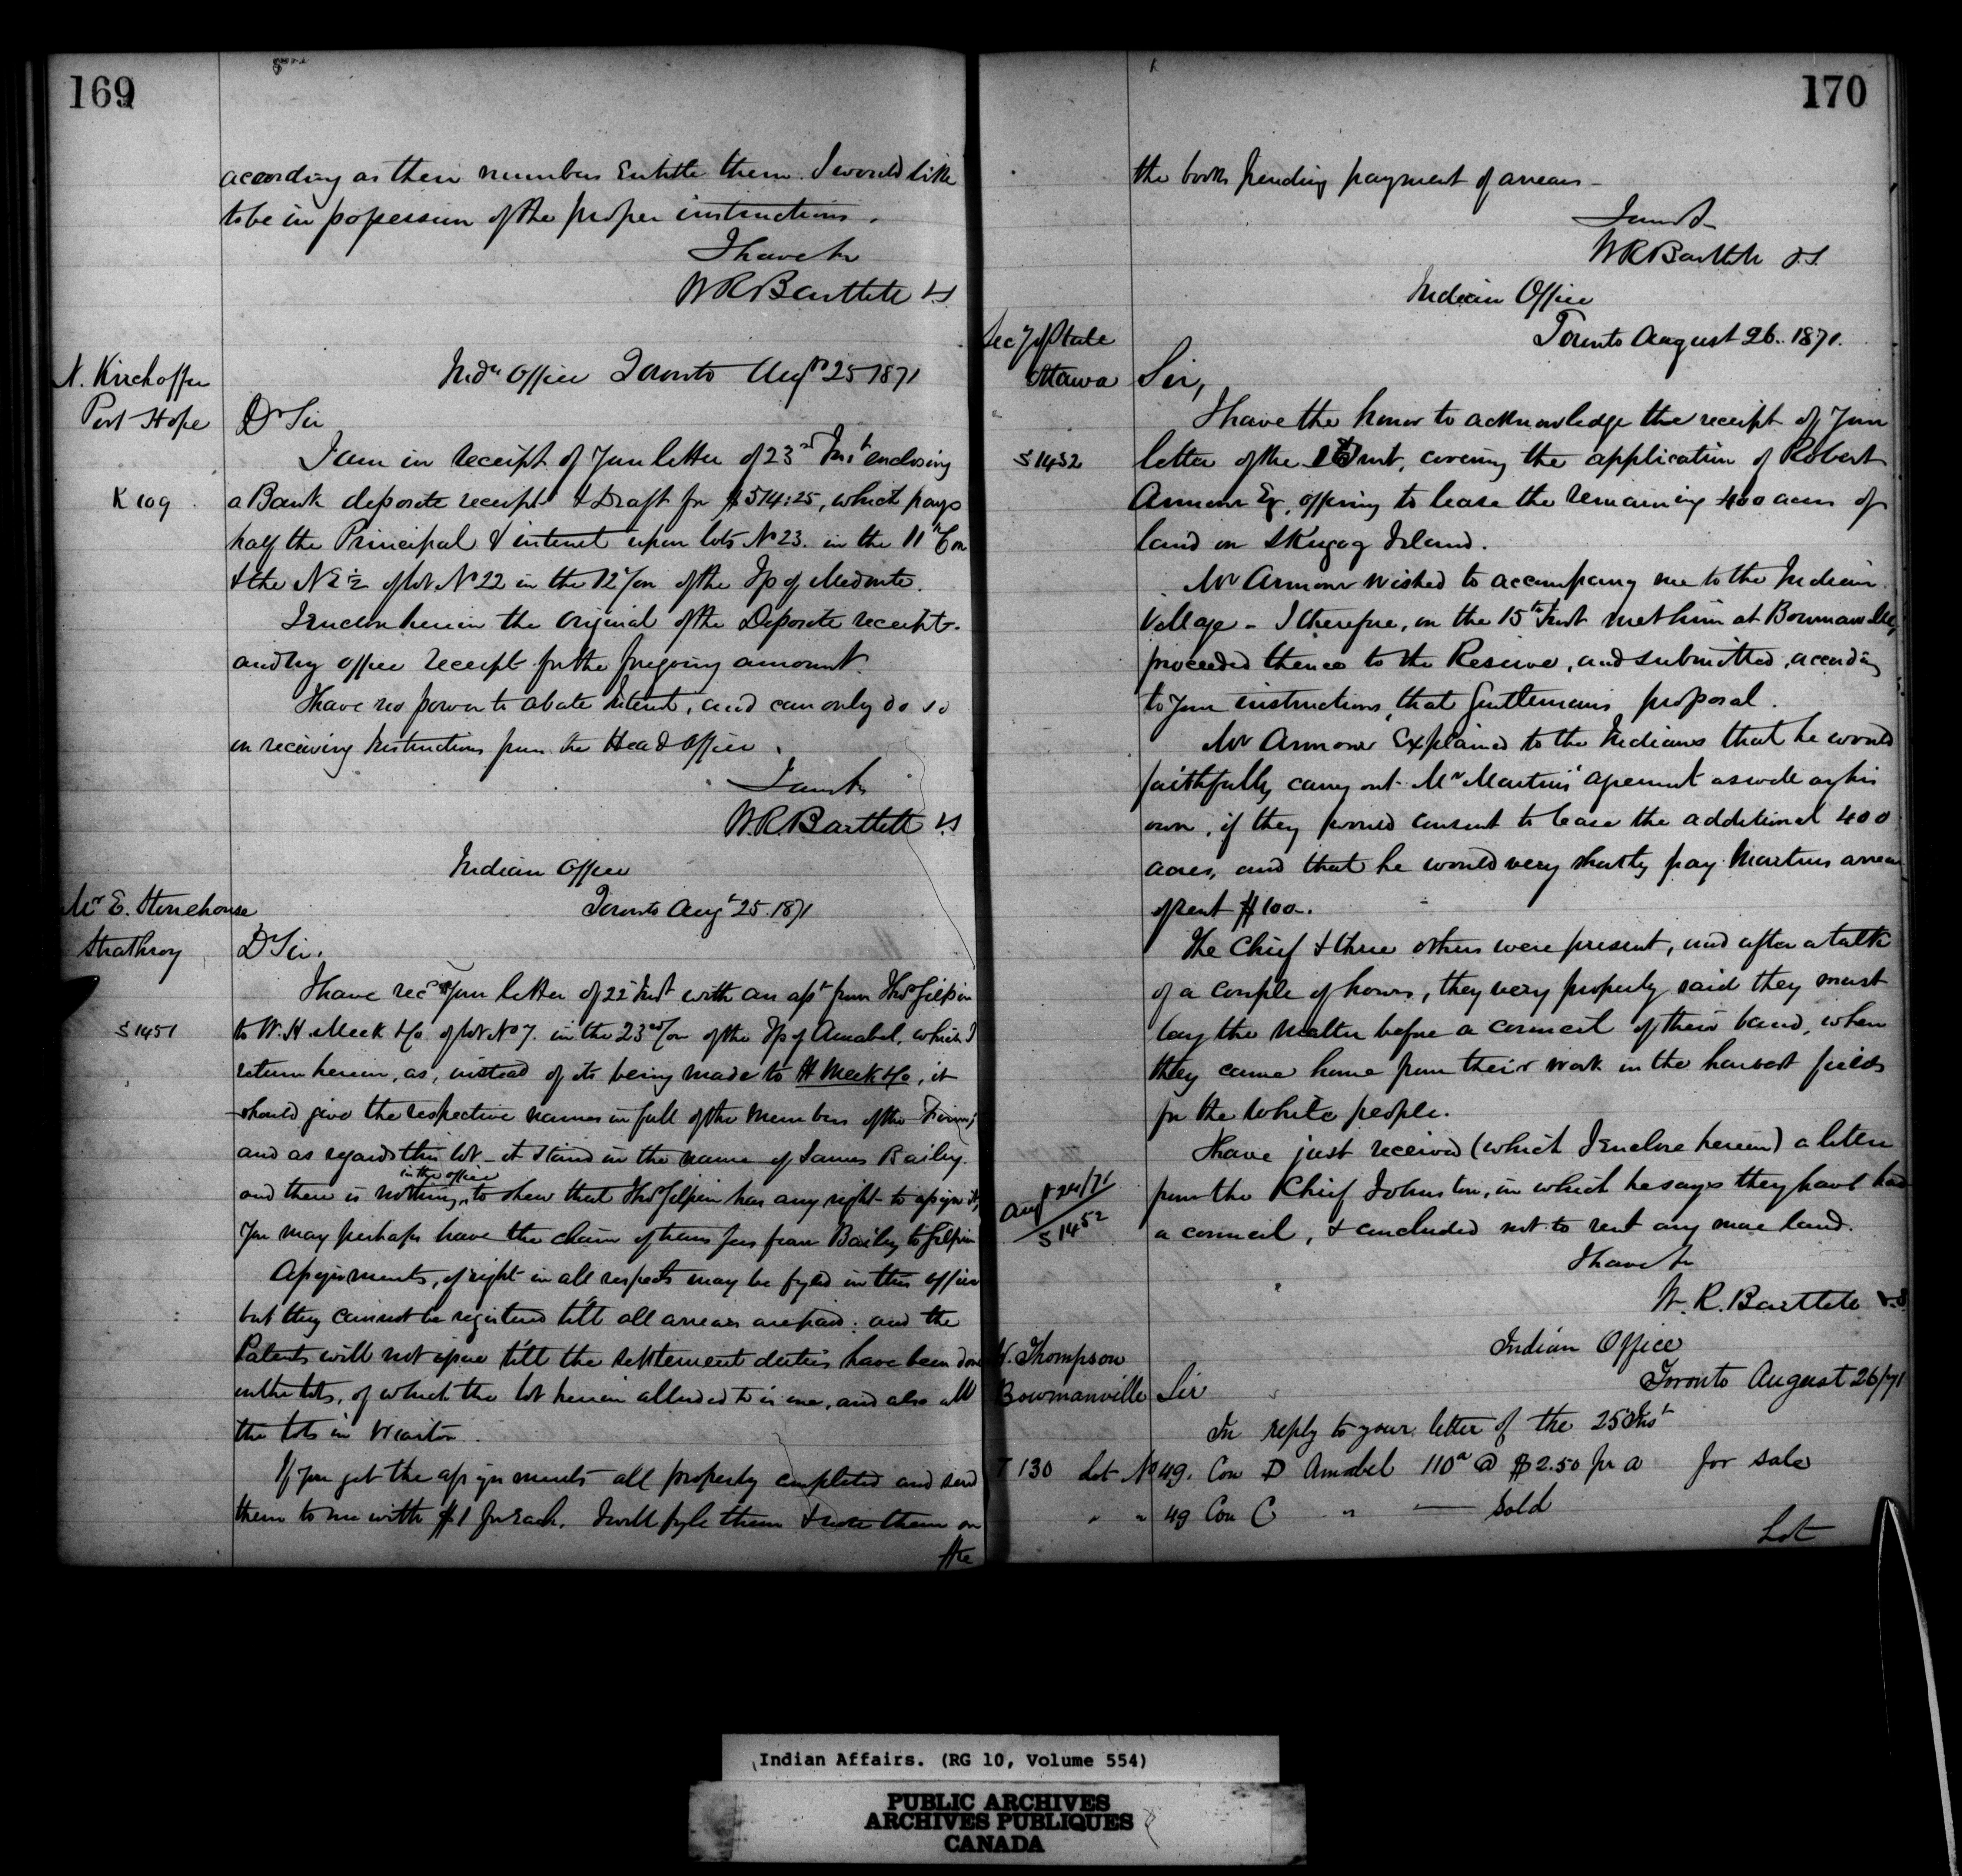 169
according as their numbers Entitle them. I would like
to be in possession of the proper instructions.
I have &c
W R Bartlett V.S
N. Kirchoffer
Port Hope
Indn Office Toronto Augt 25 1871
Dr Sir
I am in receipt of your letter of 23rd Inst enclosing
K 109
a Bank deposite receipt & Draft for $514:25, which pays
half the Principal & interest upon lots No 23. in the 11th Con
& the N E ½ of lot No 22 in the 12 Con of the Tp of Medonte.
I enclose herein the Original of the Deposite receipt.
and my office receipt for the foregoing amount.
I have no power to abate Interest, and can only do so
on receiving Instructions from the Head Office.
I am &c
W.R Bartlett V.S
Indian Office
Toronto Augt 25. 1871
Mr E. Stonehouse
Strathroy
Dr Sir,
I have recd your letter of 22 Inst with an asst from Thos Gilpin
S 1451
to W. H. Meek &Co of lot No 7. in the 23rd Con of the Tp of Amabel, which I
return herein, as, instead of its being made to H Meek &Co, it
should give the respective names in full of the Members of the Firm;
and as regards this lot - it stands in the name of James Bailey.
and there is nothing in the office to shew that Thos Gilpin has any right to assign it,
you may perhaps have the chain of transfers from Bailey to Gilpin
Assignments, if right in all respects may be fyled in this office
but they cannot be registered till all arrears are paid: and the
Patents will not issue till the settlement duties have been done
on the lots, of which the lot herein alluded to is one, and also all
the lots in Wiarton.
If you get the assignments all properly completed and send
them to me with $1 for Each. I will fyle them & note them on
the
170
the books pending payment of arrears -
I am &c
W R Bartlett V.S.
Indian Office
Toronto August 26. 1871.
Secy of State
Ottawa
Sir,
I have the honor to acknowledge the receipt of your
S 1432
letter of the inst, covering the application of Robert
Armour Eq, offering to lease the remaining 400 acres of
land on Skugog Island.
Mr Armour wished to accompany me to the Indian
Village - I therefore, on the 15th Inst met him at Bowmanville,
proceeded thence to the Reserve, and submitted, according
to your instructions, that Gentlemans proposal.
Mr Armour Explained to the Indians that he would
faithfully carry out Mr Martins' agreement as well as his
own, if they would consent to lease the additional 400
acres, and that he would very shortly pay Martins arrears
of rent $100-.
The Chief & three others were present, and after a talk
of a couple of hours, they very properly said they must
lay the matter before a council of their band, when
they came home from their work in the harvest fields
for the white people.
I have just received (which I Enclose herein) a letter
Augt 24/71
S 1452
from the Chief Johnston, in which he says they have had
a council, & concluded not to rent any more land.
I have &c
W. R. Bartlett V.S.
Indian Office
Toronto August 26/71
W. Thompson
Bowmanville
Sir
In reply to your letter of the 25 Inst
T 130 Lot No 49. Con D Amabel 110a @ $2.50 pr a for sale
" " 49 Con C " — Sold
Lot
Indian Affairs. (RG 10, Volume 554)
PUBLIC ARCHIVES
ARCHIVES PUBLIQUES
CANADA